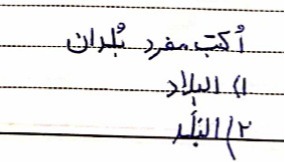 أُكتب مفرد بُلدان
١) البلاد
٢) البَلَد